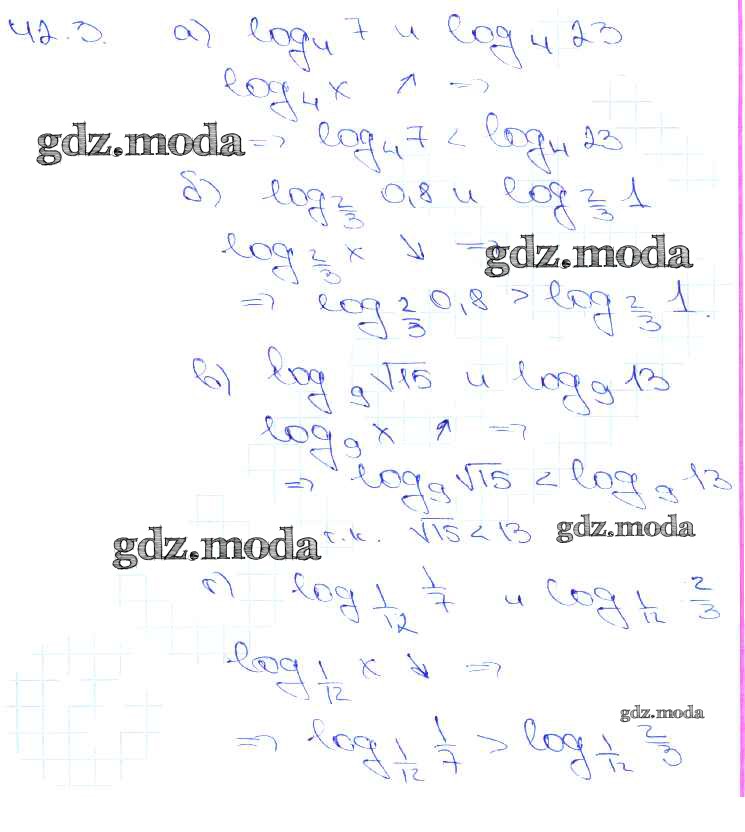 42.3. а) log₄ 7 и log₄ 23
log₄ x ↗ =>
gdz.moda => log₄ 7 < log₄ 23
б) log_{2/3} 0,8 и log_{2/3} 1
log_{2/3} x ↘ => gdz.moda
=> log_{2/3} 0,8 > log_{2/3} 1.
в) log₉ √15 и log₉ 13
log₉ x ↗ =>
=> log₉ √15 < log₉ 13
gdz.moda т.к. √15 < 13 gdz.moda
г) log_{1/12} 1/7 и log_{1/12} 2/3
log_{1/12} x ↘ =>
gdz.moda
=> log_{1/12} 1/7 > log_{1/12} 2/3